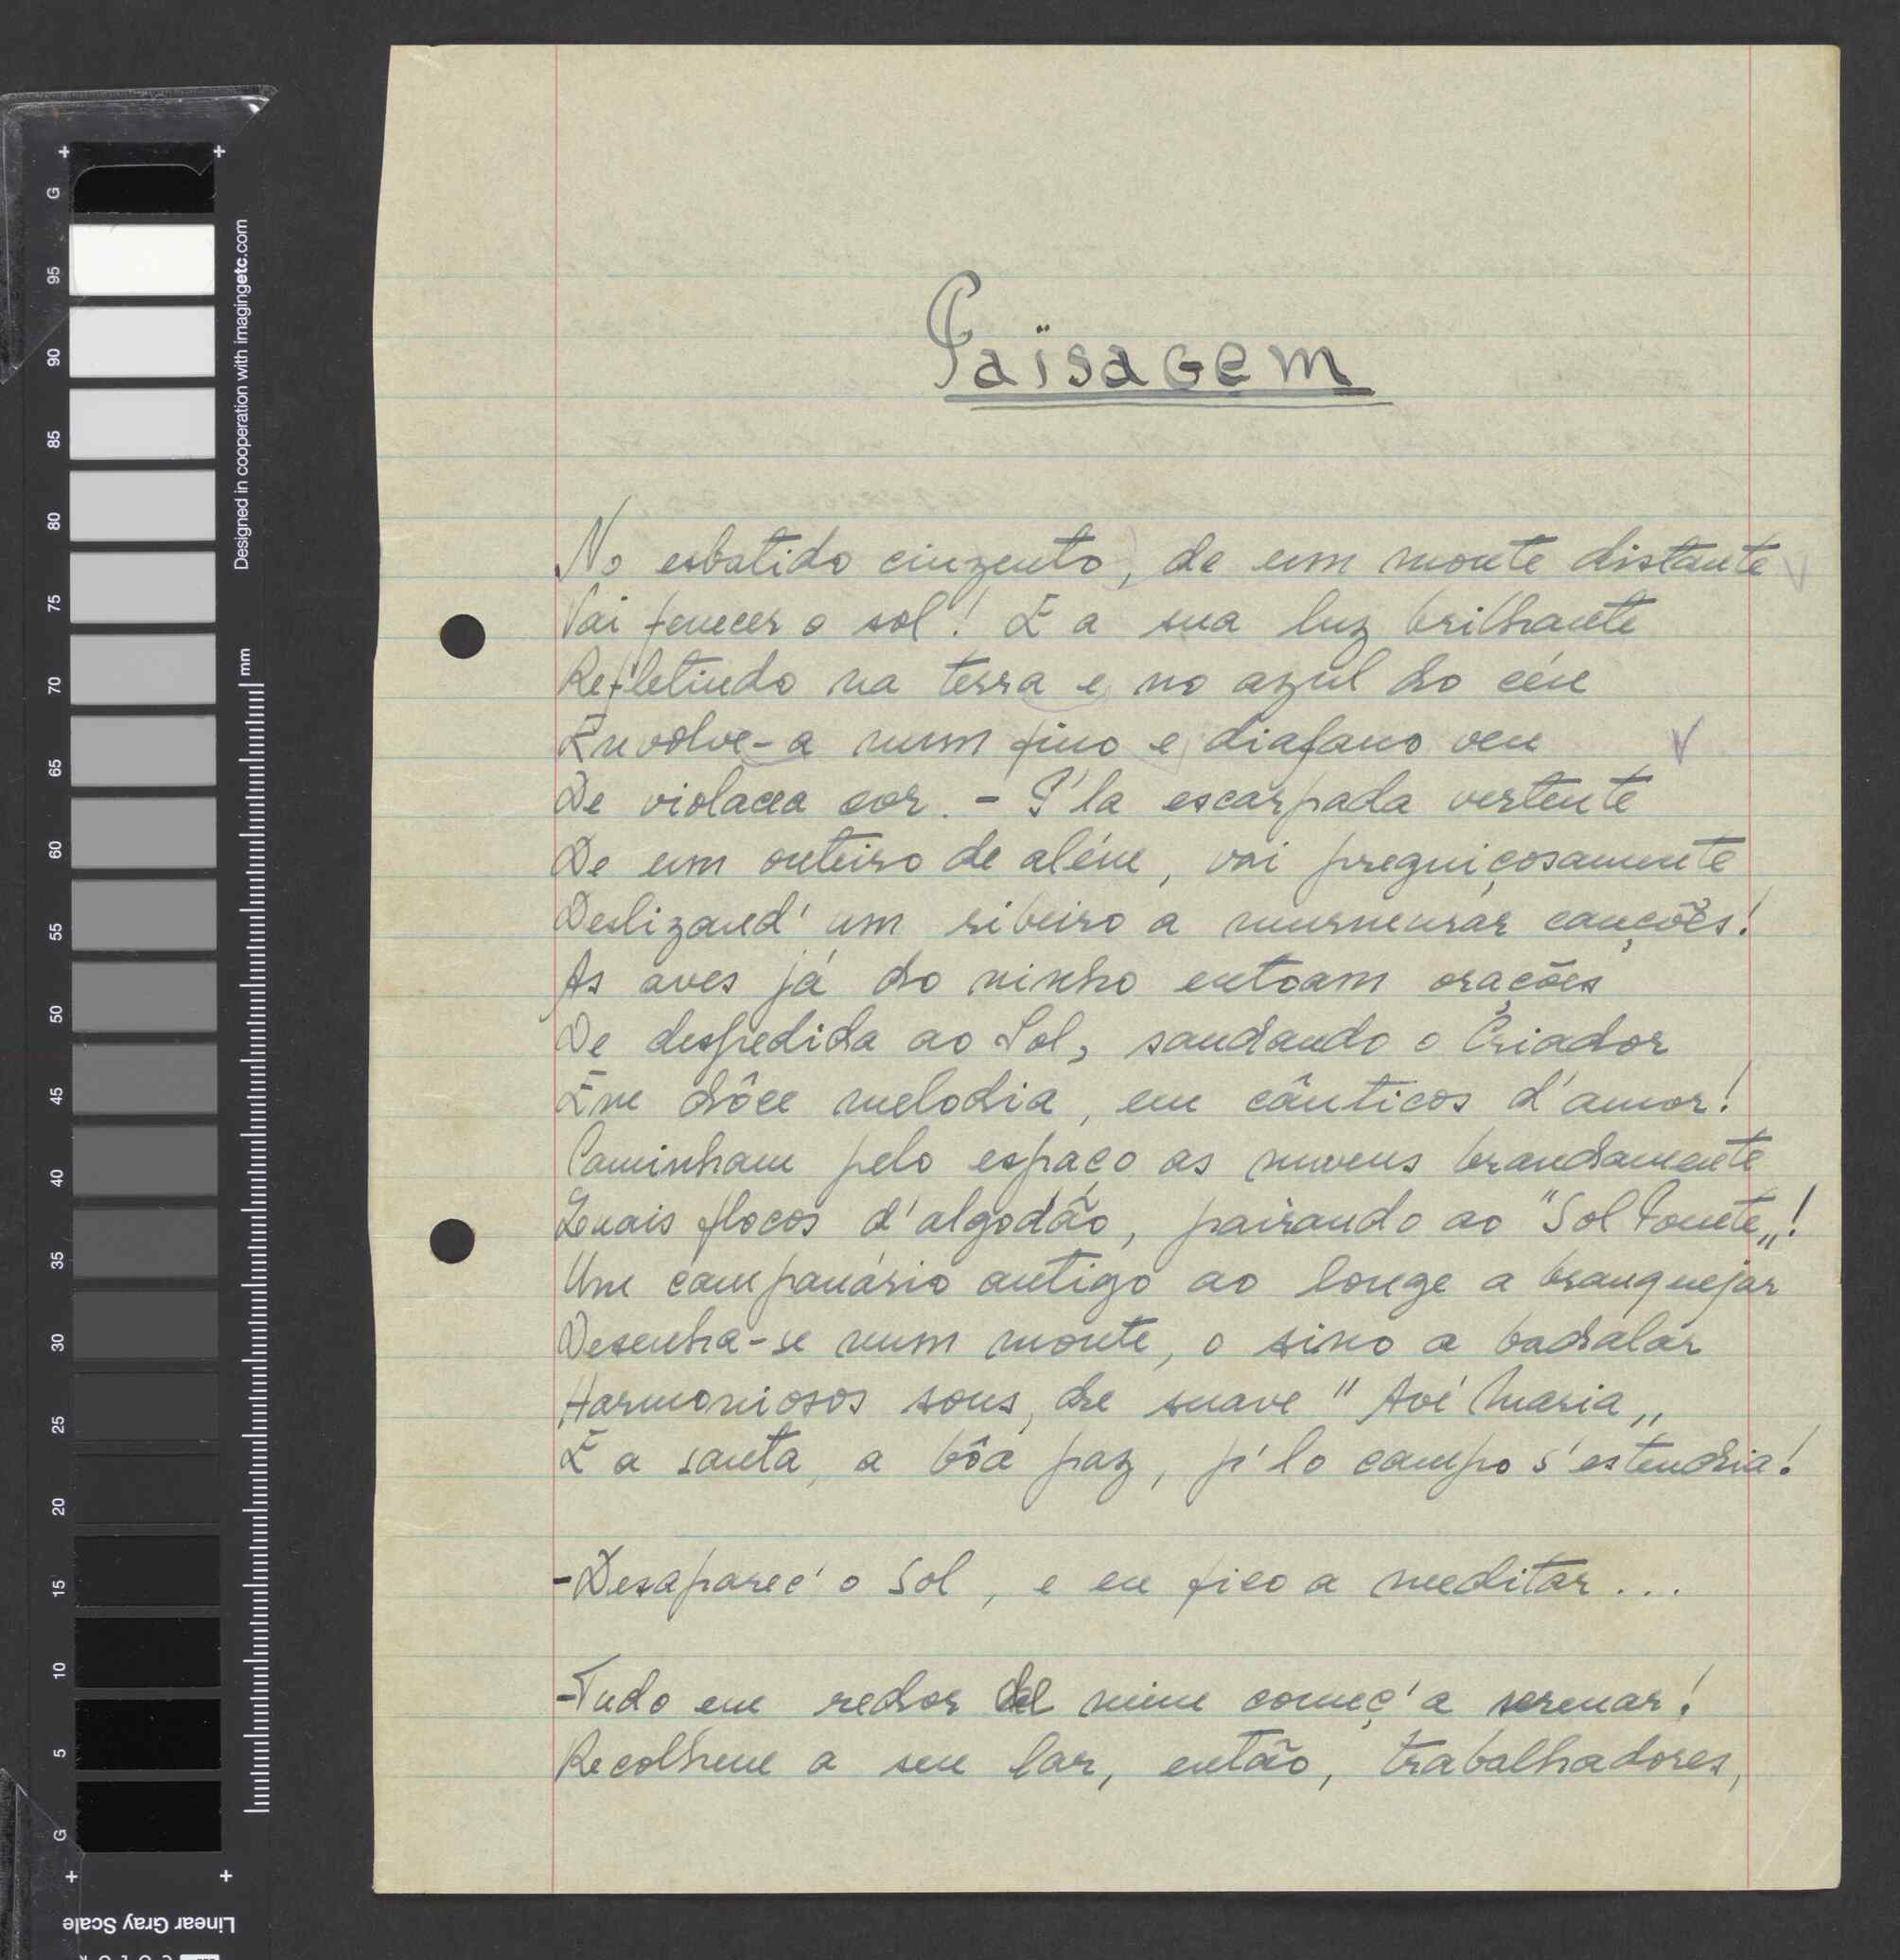 Païsagem
No esbatido cinzento, de um monte distante
Vai fenecer o sol! E a sua luz brilhante
Refletindo na terra e no azul do céu
Envolve-a num fino e diafano veu
De violacea cor. - P'la escarpada vertente
De um outeiro de além, vai preguiçosamente
Deslizand' um ribeiro a murmurar canções!
As aves já do ninho entoam orações
De despedida ao Sol, saudando o Criador
Em dôce melodia, em cânticos d'amor!
Caminham pelo espaço as nuvens brandamente
Quais flocos d'algodão, pairando ao "Sol Poente„!
Um campanário antigo ao longe a branquejar
Desenha-se num monte, o sino a badalar
Harmoniosos sons, de suave "Avé Maria„
E a santa, a bôa paz, p'lo campo s'estendia!
-Desaparec' o Sol, e eu fico a meditar...
-Tudo em redor de mim começ'a serenar!
Recolhem a seu lar, então, trabalhadores,
G
95
90
85
80
75
70
65
60
55
50
45
40
35
30
25
20
15
10
5
G
Designed in cooperation with imagingetc.com
mm
Linear Gray Scale